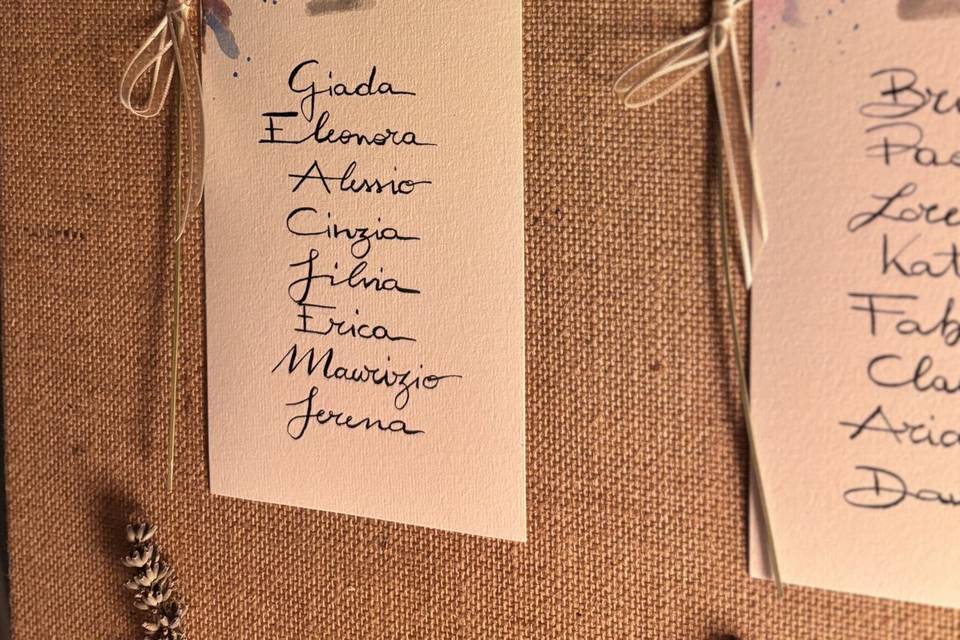 Giada
Eleonora
Alessio
Cinzia
Silvia
Erica
Maurizio
Serena
Kat
Fab
Cla
Aria